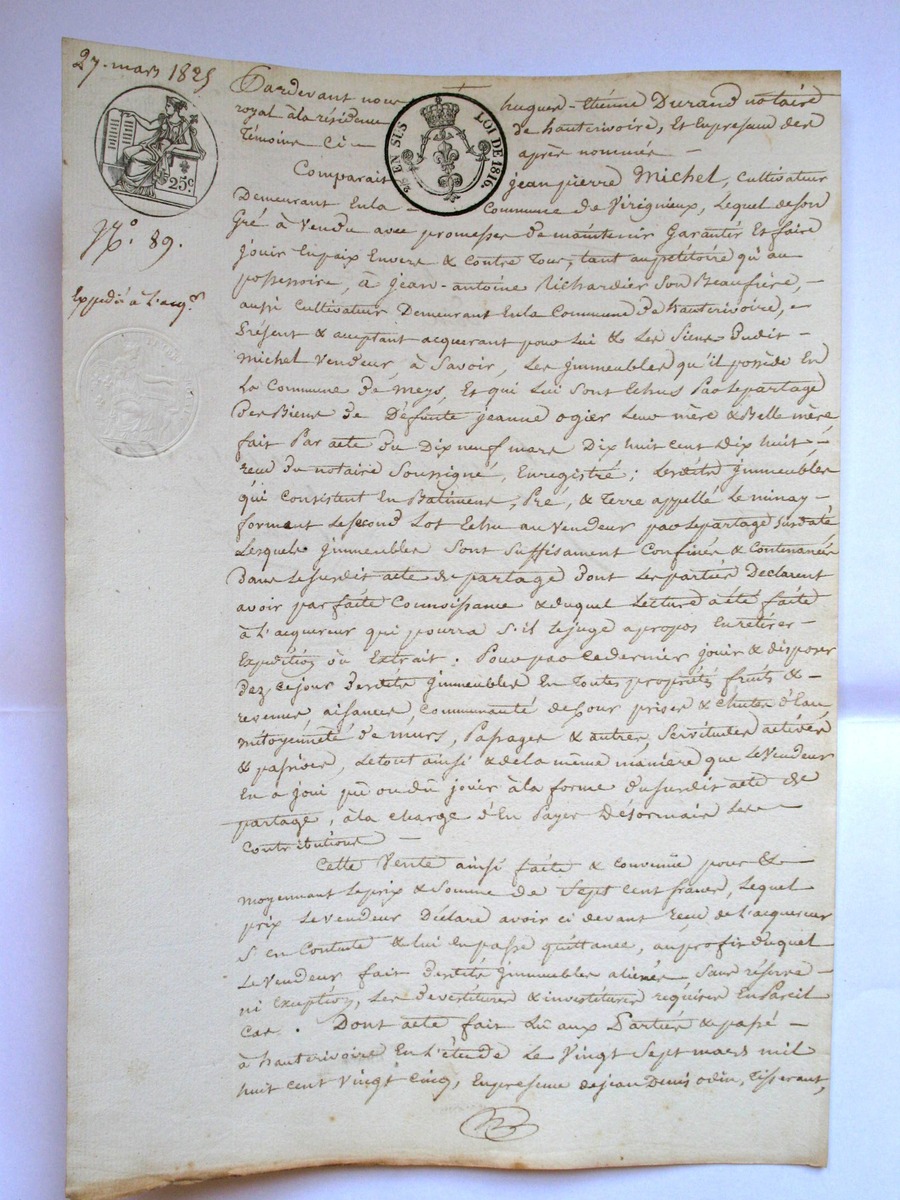 27. mars 1825
25c
N.o 89.
Expédié à l'acq.r
EN SUS LOI DE 1816.
Pardevant nous hugues-Etiénne Durand notaire
royal à la résidence de hauterivoire, Et En presence des
témoins Ci- après nommés -
Comparait jean pierre Michel, Cultivateur
Demeurant En la - Commune de Virigneux, lequel de son
Gré à Vendu avec promesses de maintenir Garantir Et faire
jouir En paix Envers & Contre Tous, tant au petitoire qu'au
possessoire, à jean-antoine Richardier son Beaufrère, -
aussi Cultivateur Demeurant En la Commune de hauterivoire, -
Présent & acceptant acquerant pour Lui & Les Siens dudit -
michel Vendeur, à Savoir, Les jmmeubles qu'il possède En
La Commune De Meys, Et qui Lui Sont Echus Par le partage
Des Biens De Défunte jeanne ogier Leur mère & Belle mère
fait Par acte Du Dix neuf mars Dix huit cent Dix huit, -
recu Du notaire Soussigné, Enregistré ; Lesdits jmmeubles
qui Consistent En Batimens, Pré, & Terre appellé Le minay -
forment Le second Lot Echu au Vendeur par le partage sus daté
Lesquels jmmeubles Sont Suffisament Confinés & Contenancés
Dans Le susdit acte de partage Dont Les parties Declarent
avoir parfaite Connoissance & duquel Lecture a été faite
à L'acquereur qui pourra S'il le juge apropos En retirer -
Expédition ou Extrait. Pour par ce dernier jouir & disposer
dez ce jour Desdits jmmeubles En Toutes propriétés fruits & -
revenus aisances, Communauté de Cour prises & chutes d'Eau,
mitoyenneté de murs, Passages & autres Servitudes actives
& passives, Le tout ainsi & de la même manière que le Vendeur
En a joui pu ou dû jouir à la forme du susdit acte de
partage, à la charge d'En Payer Désormais Les -
Contributions -
Cette Vente ainsi faite & Convenüe pour &
moyennant Le prix & Somme De Sept Cent francs, Lequel
prix Le Vendeur Déclare avoir ci devant recu de L'acquereur
S'en Contente & lui En passe quittance, au profit duquel
Le Vendeur fait Desdits jmmeubles aliénés Sans réserve -
ni Exception, Les Devestitures & investitures requises En Pareil
Cas. Dont acte fait Lu aux Parties & passé -
à hauterivoire En L'étude Le Vingt Sept mars mil
huit Cent Vingt Cinq, En presence de jean Denis odin, Tisserant,